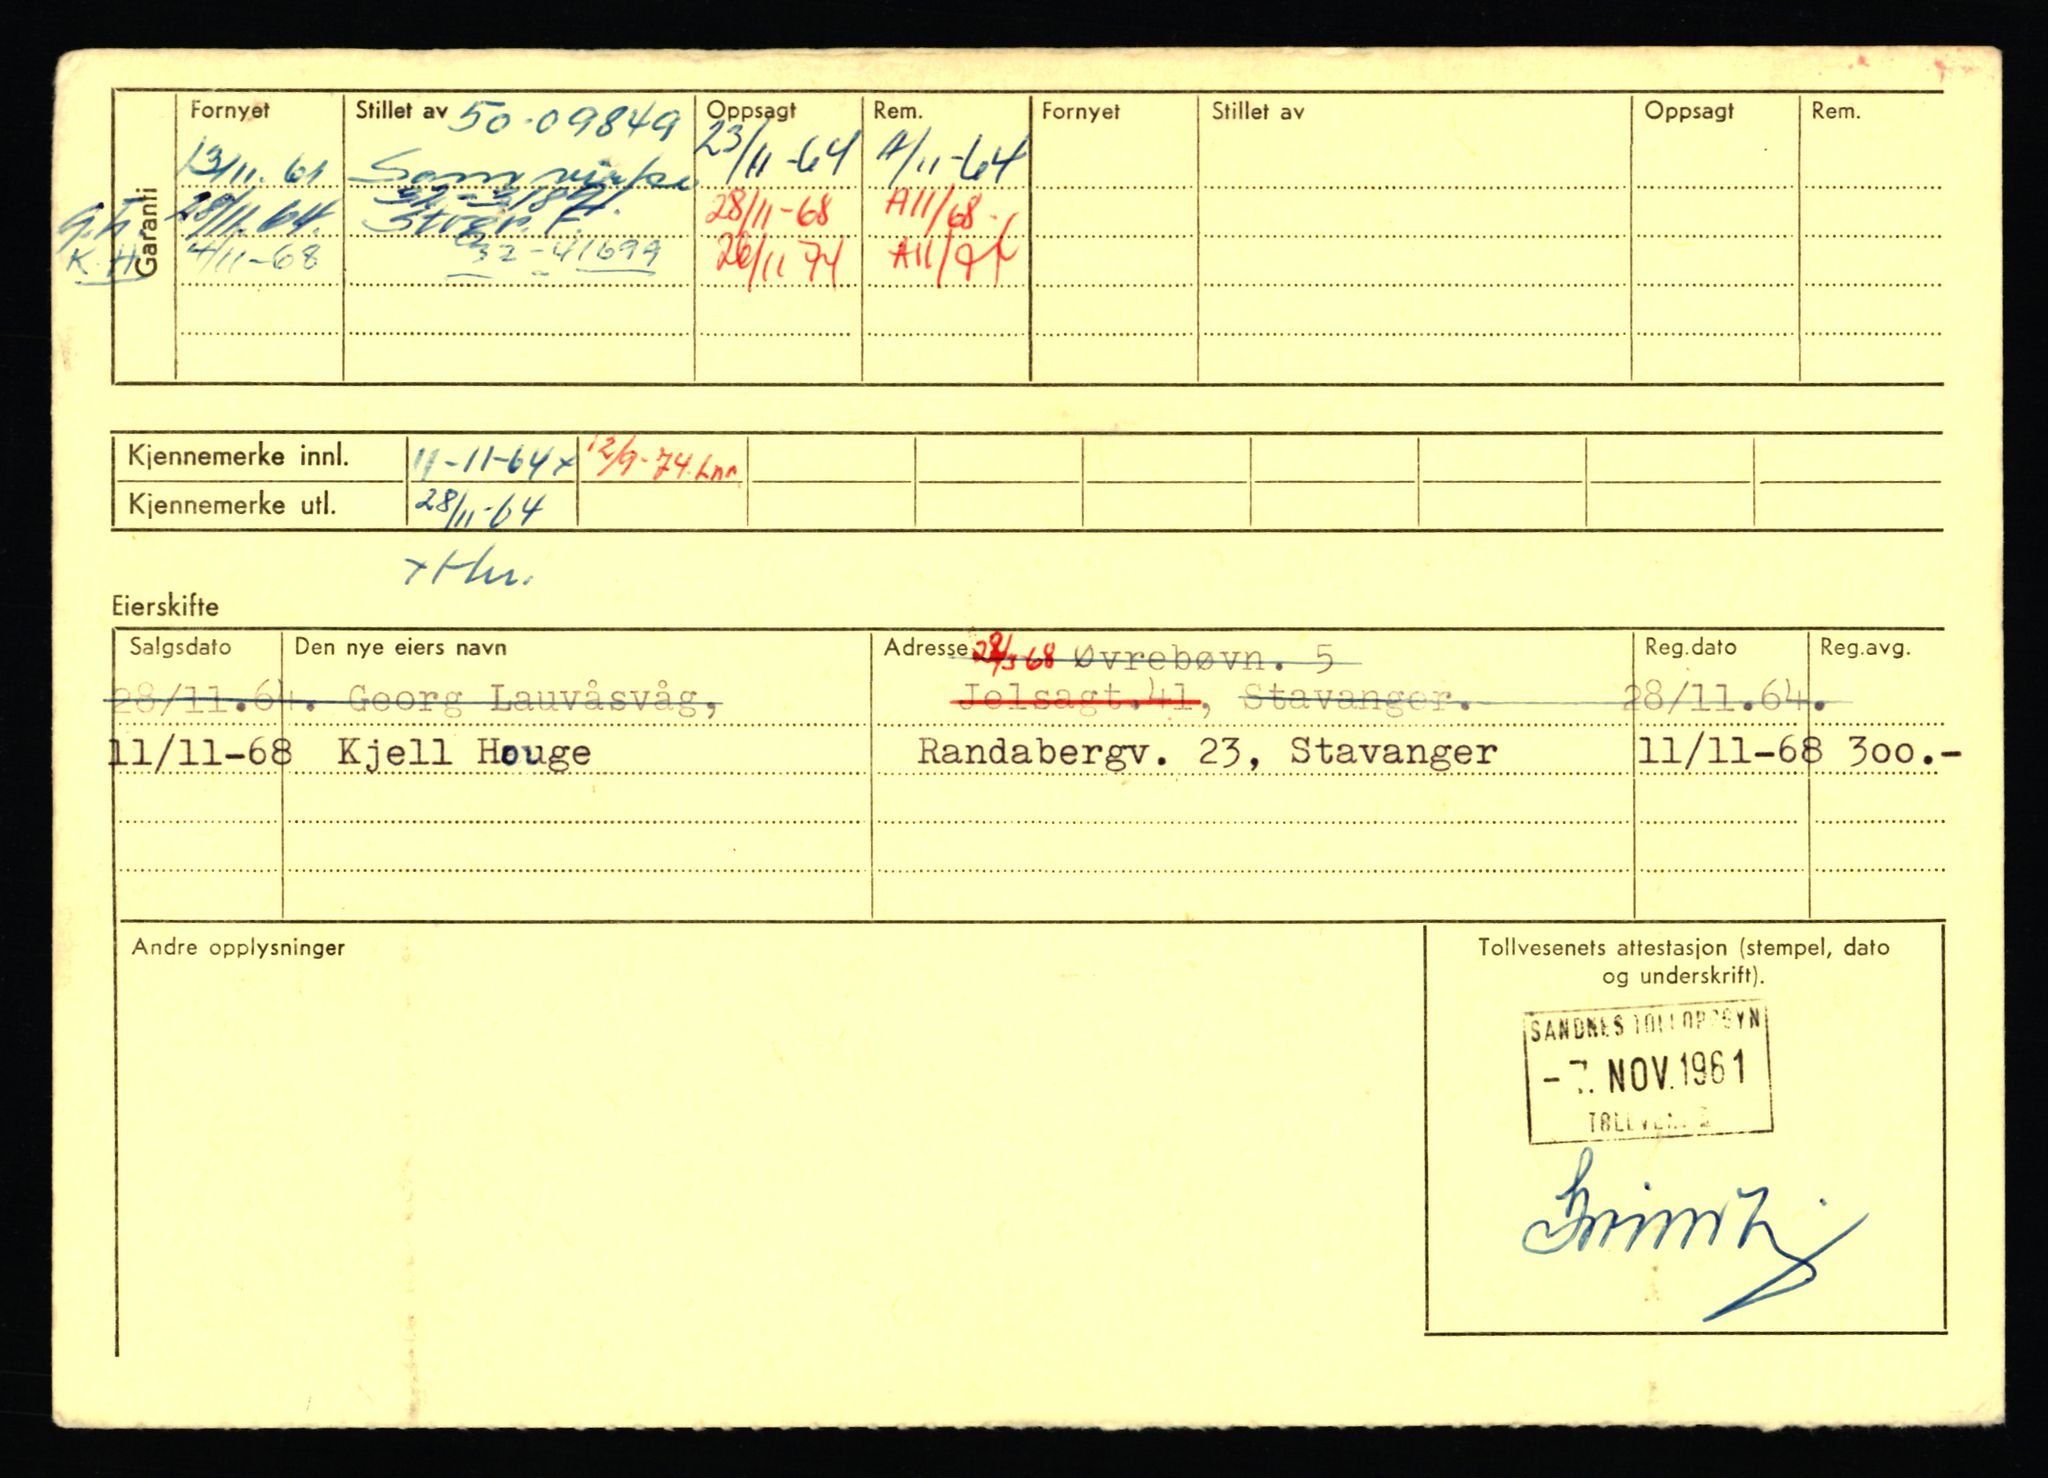 Garanti
Fornyet Stillet av 50-09849 Oppsagt Rem. Fornyet Stillet av Oppsagt Rem.
13/11.61 Samvirke 23/11-64 A/11-64
28/11.64. Storebr. 28/11-68 A11/68
K.H. 4/11-68 32-41699 26/11 74 A11/74
Kjennemerke innl. 11-11-64 x 12/9-74. Lnr.
Kjennemerke utl. 28/11-64
x Hnr.
Eierskifte
Salgsdato Den nye eiers navn Adresse 68 Øvrebøvn. 5 Reg.dato Reg.avg.
28/11.64. Georg Lauvåsvåg, Jelsagt.41, Stavanger. 28/11.64.
11/11-68 Kjell Houge Randabergv. 23, Stavanger 11/11-68 300.-
Andre opplysninger
Tollvesenets attestasjon (stempel, dato
og underskrift).
SANDNES TOLLOPPSYN
-7. NOV. 1961